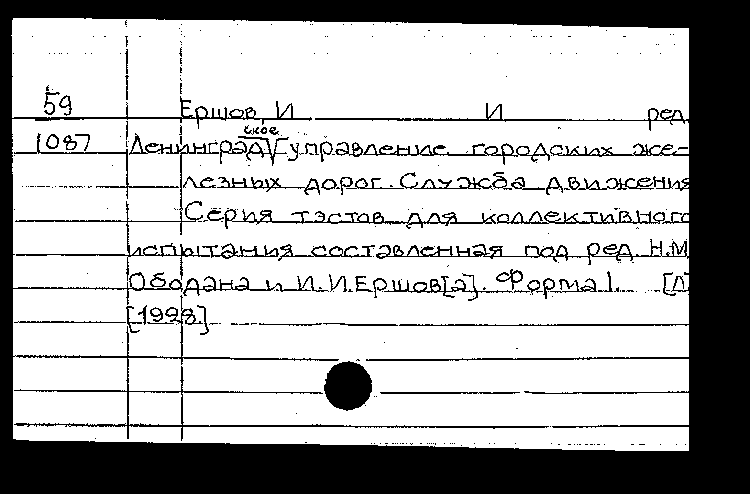 59 Ершов, И И ред.
1087 Ленинградское управление городских же-
лезных дорог. Служба движения
Серия тэстов для коллективного
испытания составленная под ред. Н.М.
Ободана и И.И.Ершов[а]. Форма I. [Л]
[1928]